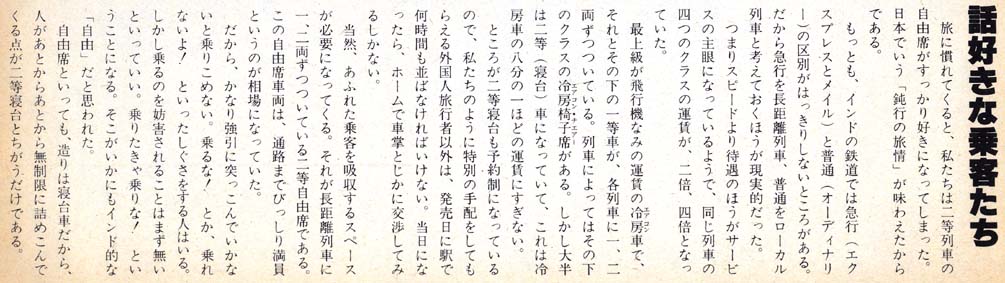 話好きな乗客たち
旅に慣れてくると、私たちは二等列車の
自由席がすっかり好きになってしまった。
日本でいう「鈍行の旅情」が味わえたから
である。
もっとも、インドの鉄道では急行（エク
スプレスとメイル）と普通（オーディナリ
ー）の区別がはっきりしないところがある。
だから急行を長距離列車、普通をローカル
列車と考えておくほうが現実的だった。
つまりスピードより待遇のほうがサービ
スの主眼になっているようで、同じ列車の
四つのクラスの運賃が、二倍、四倍となっ
ていた。
最上級が飛行機なみの運賃の冷房車で、
それとその下の一等車が、各列車に一、二
両ずつついている。列車によってはその下
のクラスの冷房椅子席がある。しかし大半
は二等（寝台）車になっていて、これは冷
房車の八分の一ほどの運賃にすぎない。
ところが二等寝台も予約制になっている
ので、私たちのように特別の手配をしても
らえる外国人旅行者以外は、発売日に駅で
何時間も並ばなければいけない。当日にな
ったら、ホームで車掌とじかに交渉してみ
るしかない。
当然、あふれた乗客を吸収するスペース
が必要になってくる。それが長距離列車に
一、二両ずつついている二等自由席である。
この自由席車両は、通路までびっしり満員
というのが相場になっていた。
だから、かなり強引に突っこんでいかな
いと乗りこめない。乗るな！　とか、乗れ
ないよ、といったしぐさをする人はいる。
しかし乗るのを妨害されることはまず無い
といっていい。乗りたきゃ乗りな！　とい
うことになる。そこがいかにもインド的な
「自由」だと思われた。
自由席といっても、造りは寝台車だから、
人があとからあとから無制限に詰めこんで
くる点が二等寝台とちがうだけである。